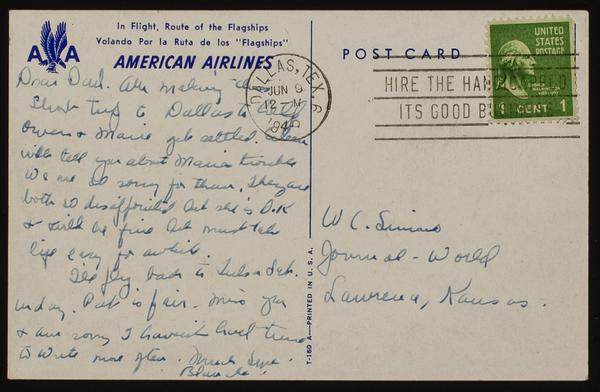 In Flight, Route of the Flagships
Volando Por la Ruta de los "Flagships"
A A
AMERICAN AIRLINES
POST CARD
UNITED STATES POSTAGE
1 CENT 1
DALLAS, TEX. 6
JUN 9
12 M
194
HIRE THE
ITS GOOD
Dear Dad. Am making a
short trip to Dallas to
Owen & Marie get settled.
will tell you about Marie trouble
We are so sorry for them. They are
both so disappointed but she's O.K
& will be fine but must take
life easy for awhile.
I'll fly back to Tulsa
day. Pat is fair. Miss you
& am sorry I haven't had time
to write more often. Much Love
Blanche.
W C. Simons
Journal-World
Lawrence, Kansas.
T-160 A—PRINTED IN U. S. A.